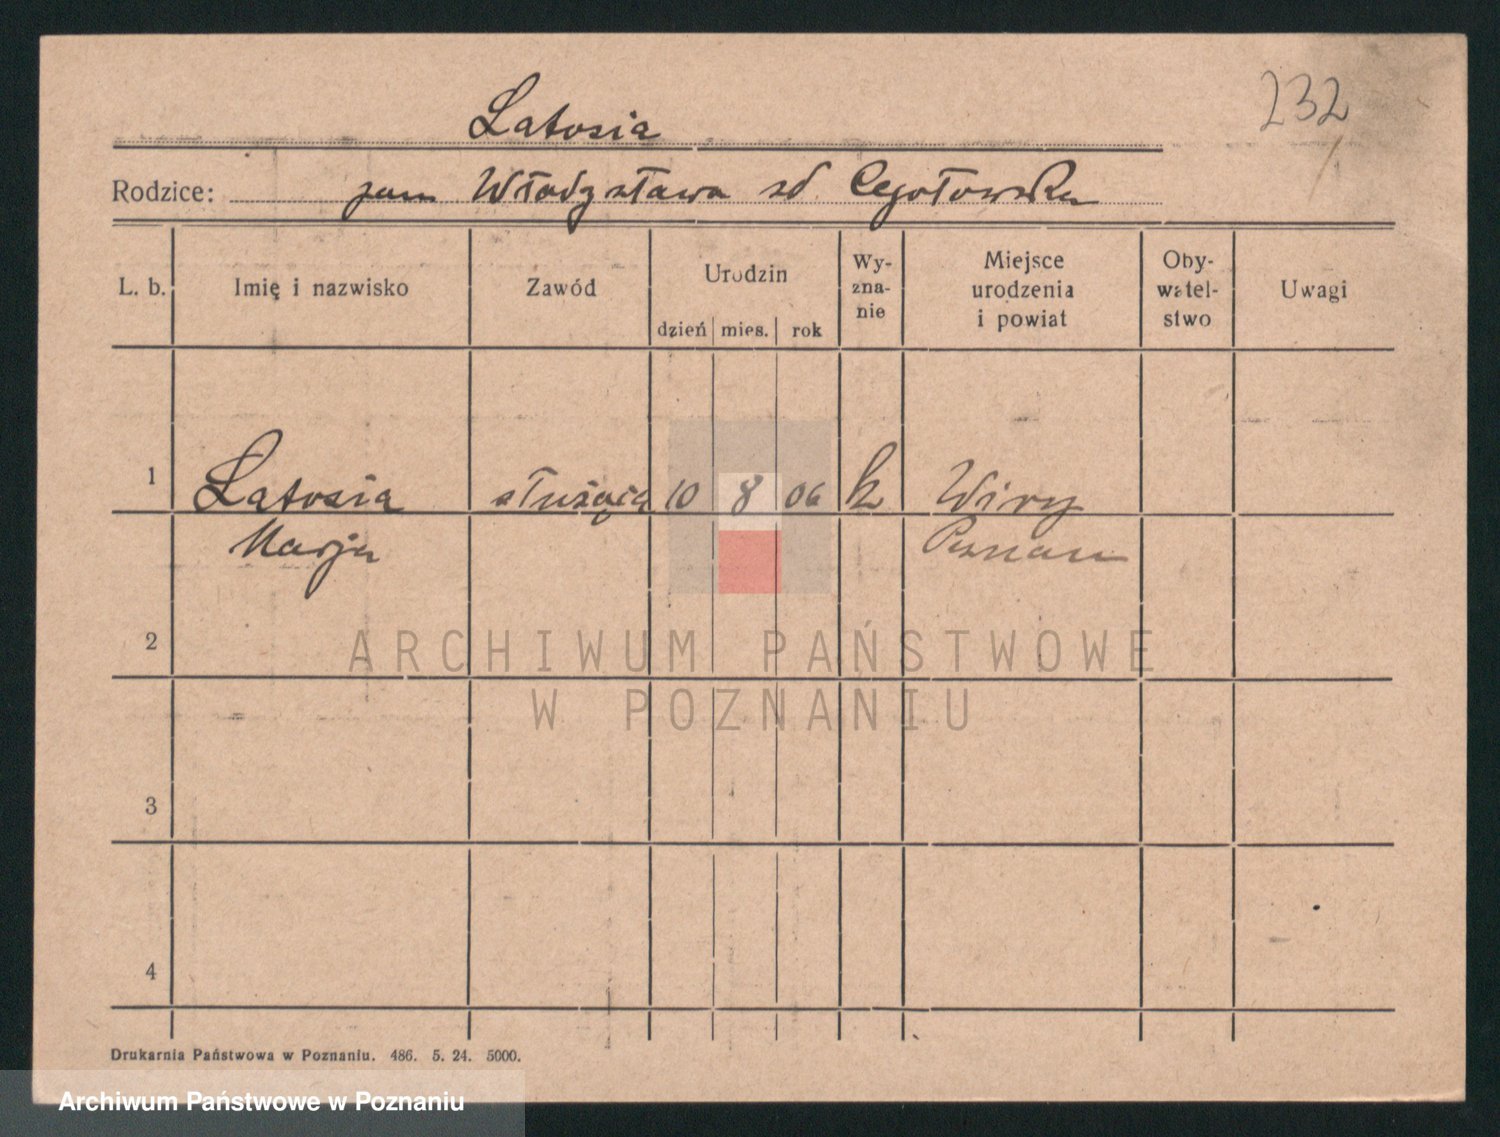 232
Latosia
Rodzice: Jan Władysława zd Cegłowska
L. b. Imię i nazwisko Zawód Urodzin dzień mies. rok Wy-zna-nie Miejsce urodzenia i powiat Oby-watel-stwo Uwagi
1 Latosia służąca 10 8 06 k Wiry
Marja Poznań
2
ARCHIWUM PAŃSTWOWE
W POZNANIU
3
4
Drukarnia Państwowa w Poznaniu. 486. 5. 24. 5000.
Archiwum Państwowe w Poznaniu